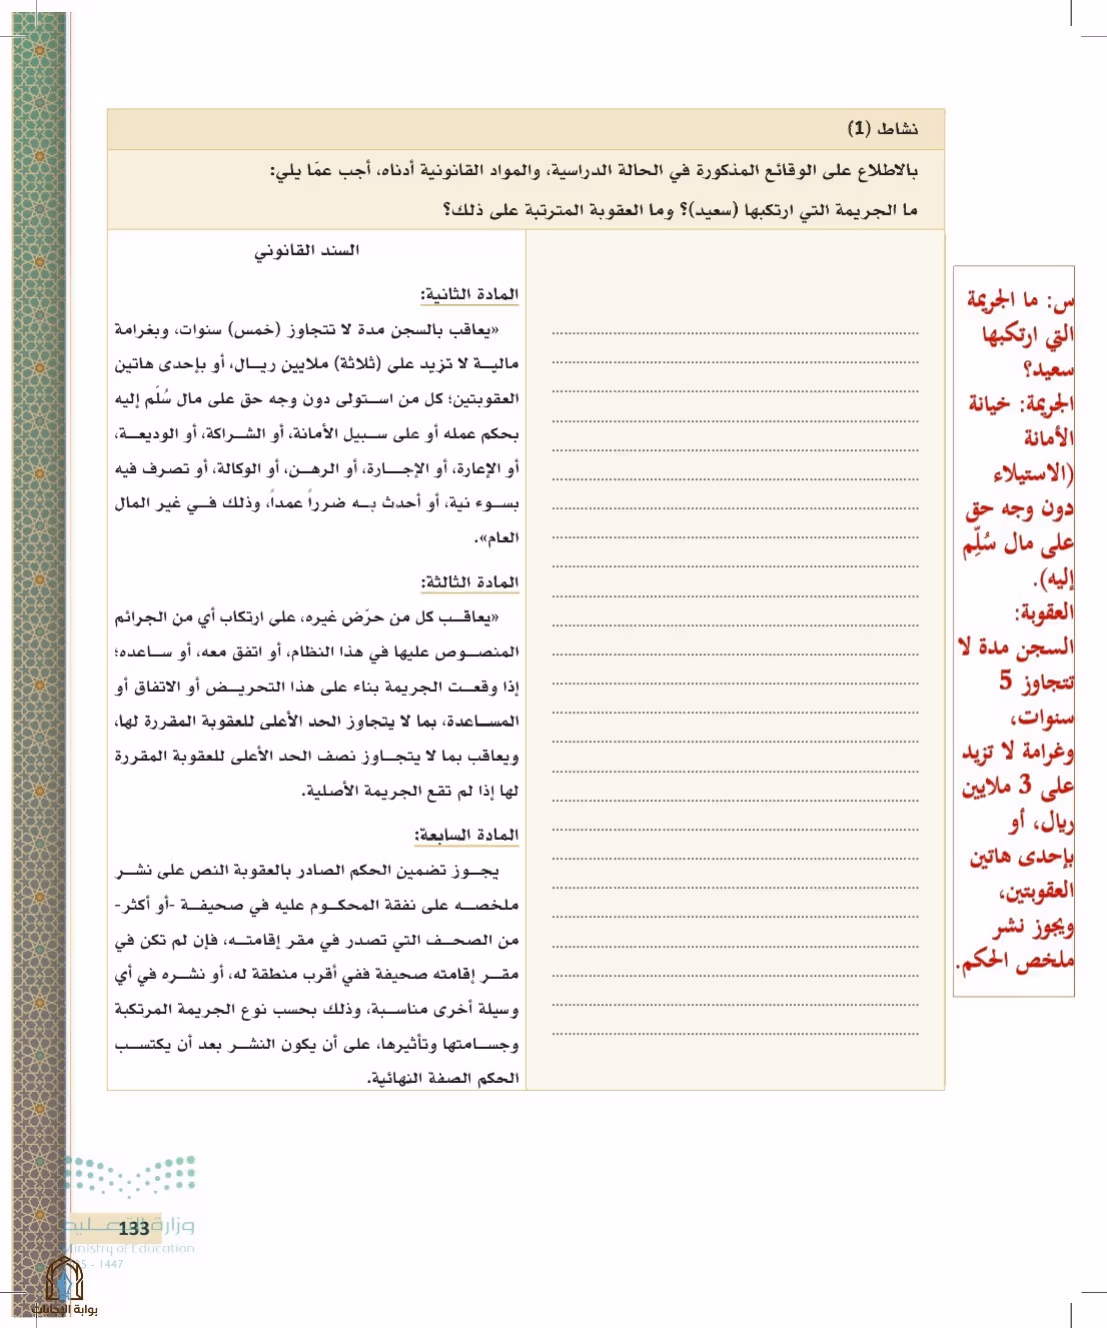 نشاط (1)
بالاطلاع على الوقائع المذكورة في الحالة الدراسية، والمواد القانونية أدناه، أجب عمّا يلي:
ما الجريمة التي ارتكبها (سعيد)؟ وما العقوبة المترتبة على ذلك؟
س: ما الجريمة
التي ارتكبها
سعيد؟
الجريمة: خيانة
الأمانة
(الاستيلاء
دون وجه حق
على مال سُلِّم
إليه).
العقوبة:
السجن مدة لا
تتجاوز 5
سنوات،
وغرامة لا تزيد
على 3 ملايين
ريال، أو
بإحدى هاتين
العقوبتين،
ويجوز نشر
ملخص الحكم.
السند القانوني
المادة الثانية:
«يعاقب بالسجن مدة لا تتجاوز (خمس) سنوات، وبغرامة
مالية لا تزيد على (ثلاثة) ملايين ريال، أو بإحدى هاتين
العقوبتين؛ كل من استولى دون وجه حق على مال سُلّم إليه
بحكم عمله أو على سبيل الأمانة، أو الشراكة، أو الوديعة،
أو الإعارة، أو الإجارة، أو الرهن، أو الوكالة، أو تصرف فيه
بسوء نية، أو أحدث به ضرراً عمداً، وذلك في غير المال
العام».
المادة الثالثة:
«يعاقب كل من حرّض غيره، على ارتكاب أي من الجرائم
المنصوص عليها في هذا النظام، أو اتفق معه، أو ساعده؛
إذا وقعت الجريمة بناء على هذا التحريض أو الاتفاق أو
المساعدة، بما لا يتجاوز الحد الأعلى للعقوبة المقررة لها،
ويعاقب بما لا يتجاوز نصف الحد الأعلى للعقوبة المقررة
لها إذا لم تقع الجريمة الأصلية.
المادة السابعة:
يجوز تضمين الحكم الصادر بالعقوبة النص على نشر
ملخصه على نفقة المحكوم عليه في صحيفة -أو أكثر-
من الصحف التي تصدر في مقر إقامته، فإن لم تكن في
مقر إقامته صحيفة ففي أقرب منطقة له، أو نشره في أي
وسيلة أخرى مناسبة، وذلك بحسب نوع الجريمة المرتكبة
وجسامتها وتأثيرها، على أن يكون النشر بعد أن يكتسب
الحكم الصفة النهائية.
وزارة التعليم
133
Ministry of Education
5 - 1447
بوابة الإجابات